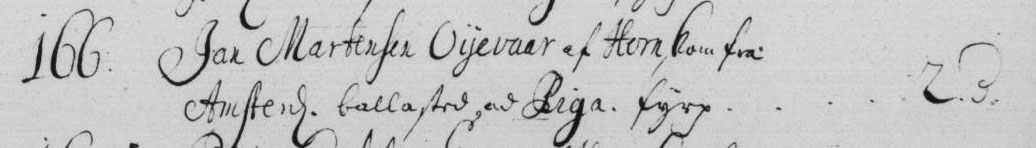 166. Jan Martensen Oijevaar af Horn, kom fra
Amsterd. ballasted, ad Riga. fyrp . . . . . 2. D.